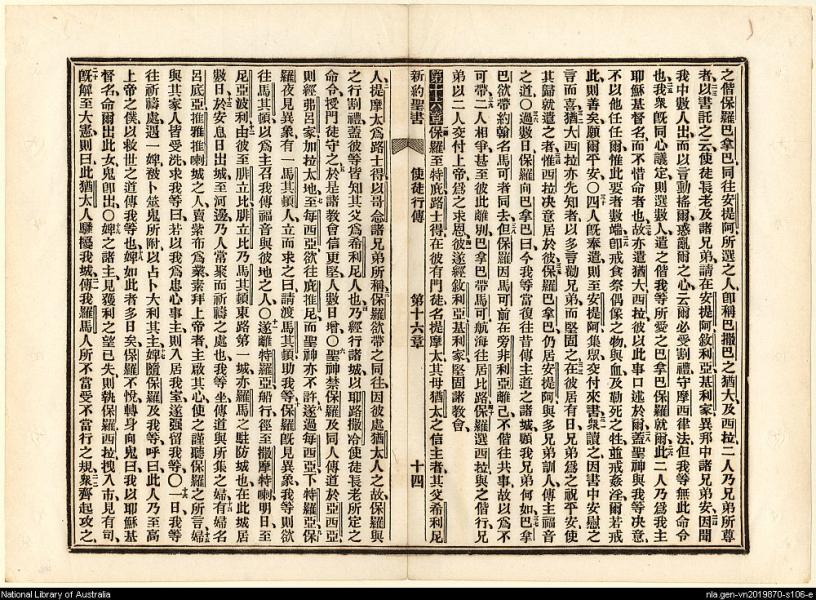 之偕保羅巴拿巴同往安提阿所選之人卽稱巴撒巴之猶大及西拉二人乃兄弟所尊
者以書託之云使徒長老及諸兄弟請在安提阿敘利亞基利家異邦中諸兄弟安因聞
我中數人出而以言動搖爾惑亂爾之心云爾必受割禮守摩西律法但我等無此命令
也我衆旣同心議定則選數人遣之偕我等所愛之巴拿巴保羅就爾此二人乃爲我主
耶穌基督名而不惜命者也故亦遣猶大西拉彼以此事口述於爾蓋聖神與我等决意
不以他任任爾惟此要者數端卽戒食祭偶像之物與血及勒死之牲並戒姦淫爾若戒
此則善矣願爾平安〇四人旣奉遣則至安提阿集衆交付來書衆讀之因書中安慰之
言而喜猶大西拉亦先知者以多言勸兄弟而堅固之在彼居有日兄弟爲之祝平安使
其歸就遣之者惟西拉决意居於彼保羅巴拿巴仍居安提阿與多兄弟訓人傳主福音
之道〇過數日保羅向巴拿巴曰今我等當復往昔傳主道之諸城顧我兄弟何如巴拿
巴欲帶約翰名馬可者同去但保羅因馬可前在旁非利亞離己不偕往共事故以爲不
可帶二人相爭甚至彼此離別巴拿巴帶馬可航海往居比路保羅選西拉與之偕行兄
弟以二人交付上帝爲之求恩彼遂經敘利亞基利家堅固諸敎會
第十六章保羅至特庇路士得在彼有門徒名提摩太其母猶太之信主者其父希利尼
新約聖書 使徒行傳 第十六章 十四
人提摩太爲路士得以哥念諸兄弟所稱保羅欲帶之同往因彼處猶太人之故保羅與
之行割禮蓋彼等皆知其父爲希利尼人也乃經行諸城以耶路撒冷使徒長老所定之
命令授門徒守之於是諸敎會信更堅人數日增〇聖神禁保羅及同人傳道於亞西亞
則經弗呂家加拉太地至每西亞欲往庇推尼而聖神亦不許遂過每西亞下特羅亞保
羅夜見異象有一馬其頓人立而求之曰請渡馬其頓助我等保羅旣見異象我等則欲
往馬其頓以爲主召我傳福音與彼地之人〇遂離特羅亞船行徑至撒摩特喇明日至
尼亞波利由彼至腓立比腓立比乃馬其頓東路第一城亦羅馬之駐防城也在此城居
數日於安息日出城至河邊乃人常聚而祈禱之處也我等坐傳道與所集之婦有婦名
呂底亞推雅推喇城之人賣紫布爲業素拜上帝者主啟其心使之謹聽保羅之所言婦
與其家人皆受洗求我等曰若以我爲忠心事主則入居我室遂强留我等〇一日我等
往祈禱處遇一婢被卜筮鬼所附以占卜大利其主婢隨保羅及我等呼曰此人乃至高
上帝之僕以救世之道傳我等也婢如此者多日矣保羅不悅轉身向鬼曰我以耶穌基
督名命爾出此女鬼卽出〇婢之諸主見獲利之望已失則執保羅西拉拽入市見有司
旣解至大憲則曰此猶太人騷擾我城傳我羅馬人所不當受不當行之規衆齊起攻之
National Library of Australia
nla.gen-vn2019870-s106-e